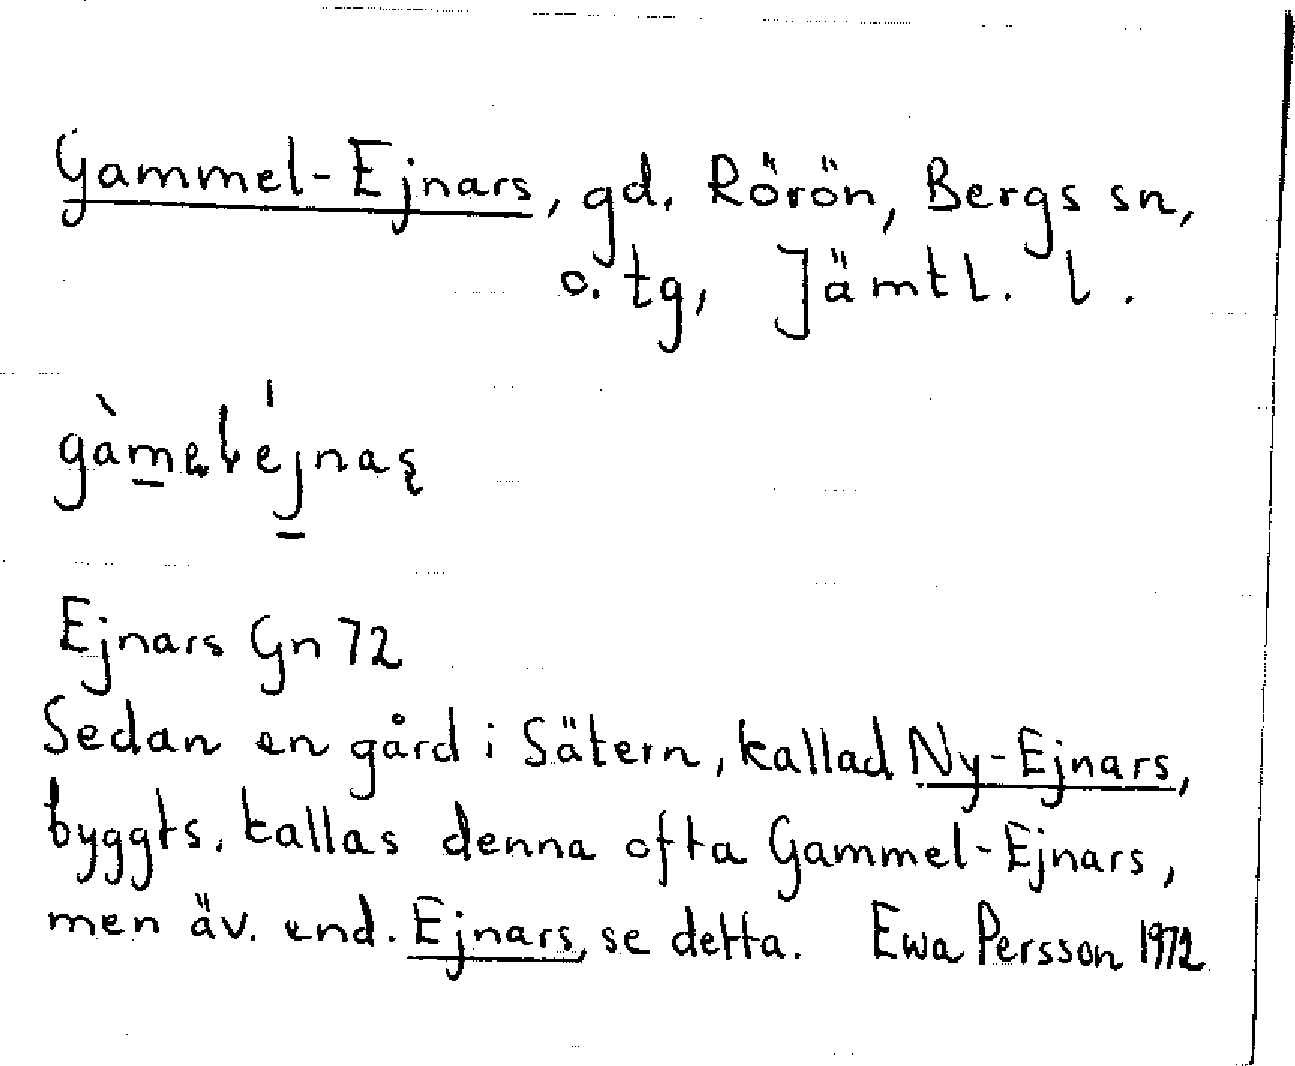 Gammel-Ejnars, gd. Rörön, Bergs sn,
o. tg, Jämtl. l.
Ejnars Gn 72
Sedan en gård i Sätern, kallad Ny-Ejnars,
byggts, kallas denna ofta Gammel-Ejnars,
men äv. end. Ejnars, se detta. Ewa Persson 1972